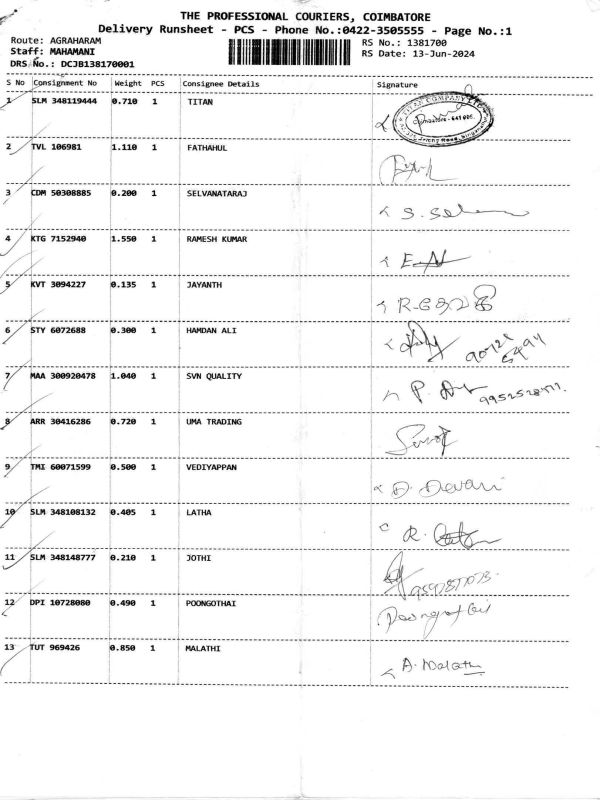 THE PROFESSIONAL COURIERS, COIMBATORE
Delivery Runsheet - PCS - Phone No.:0422-3505555 - Page No.:1
Route: AGRAHARAM
RS No.: 1381700
Staff: MAHAMANI
RS Date: 13-Jun-2024
DRS No.: DCJB138170001
S No Consignment No Weight PCS Consignee Details Signature
1 SLM 348119444 0.710 1 TITAN
2 TVL 106981 1.110 1 FATHAHUL
3 CDM 50308885 0.200 1 SELVANATARAJ
4 KTG 7152940 1.550 1 RAMESH KUMAR
5 KVT 3094227 0.135 1 JAYANTH
6 STY 6072688 0.300 1 HAMDAN ALI
7 MAA 300920478 1.040 1 SVN QUALITY P.
8 ARR 30416286 0.720 1 UMA TRADING
9 TMI 60071599 0.500 1 VEDIYAPPAN D. Devani
10 SLM 348108132 0.405 1 LATHA R.
11 SLM 348148777 0.210 1 JOTHI
12 DPI 10728080 0.490 1 POONGOTHAI
13 TUT 969426 0.850 1 MALATHI A. Malathi